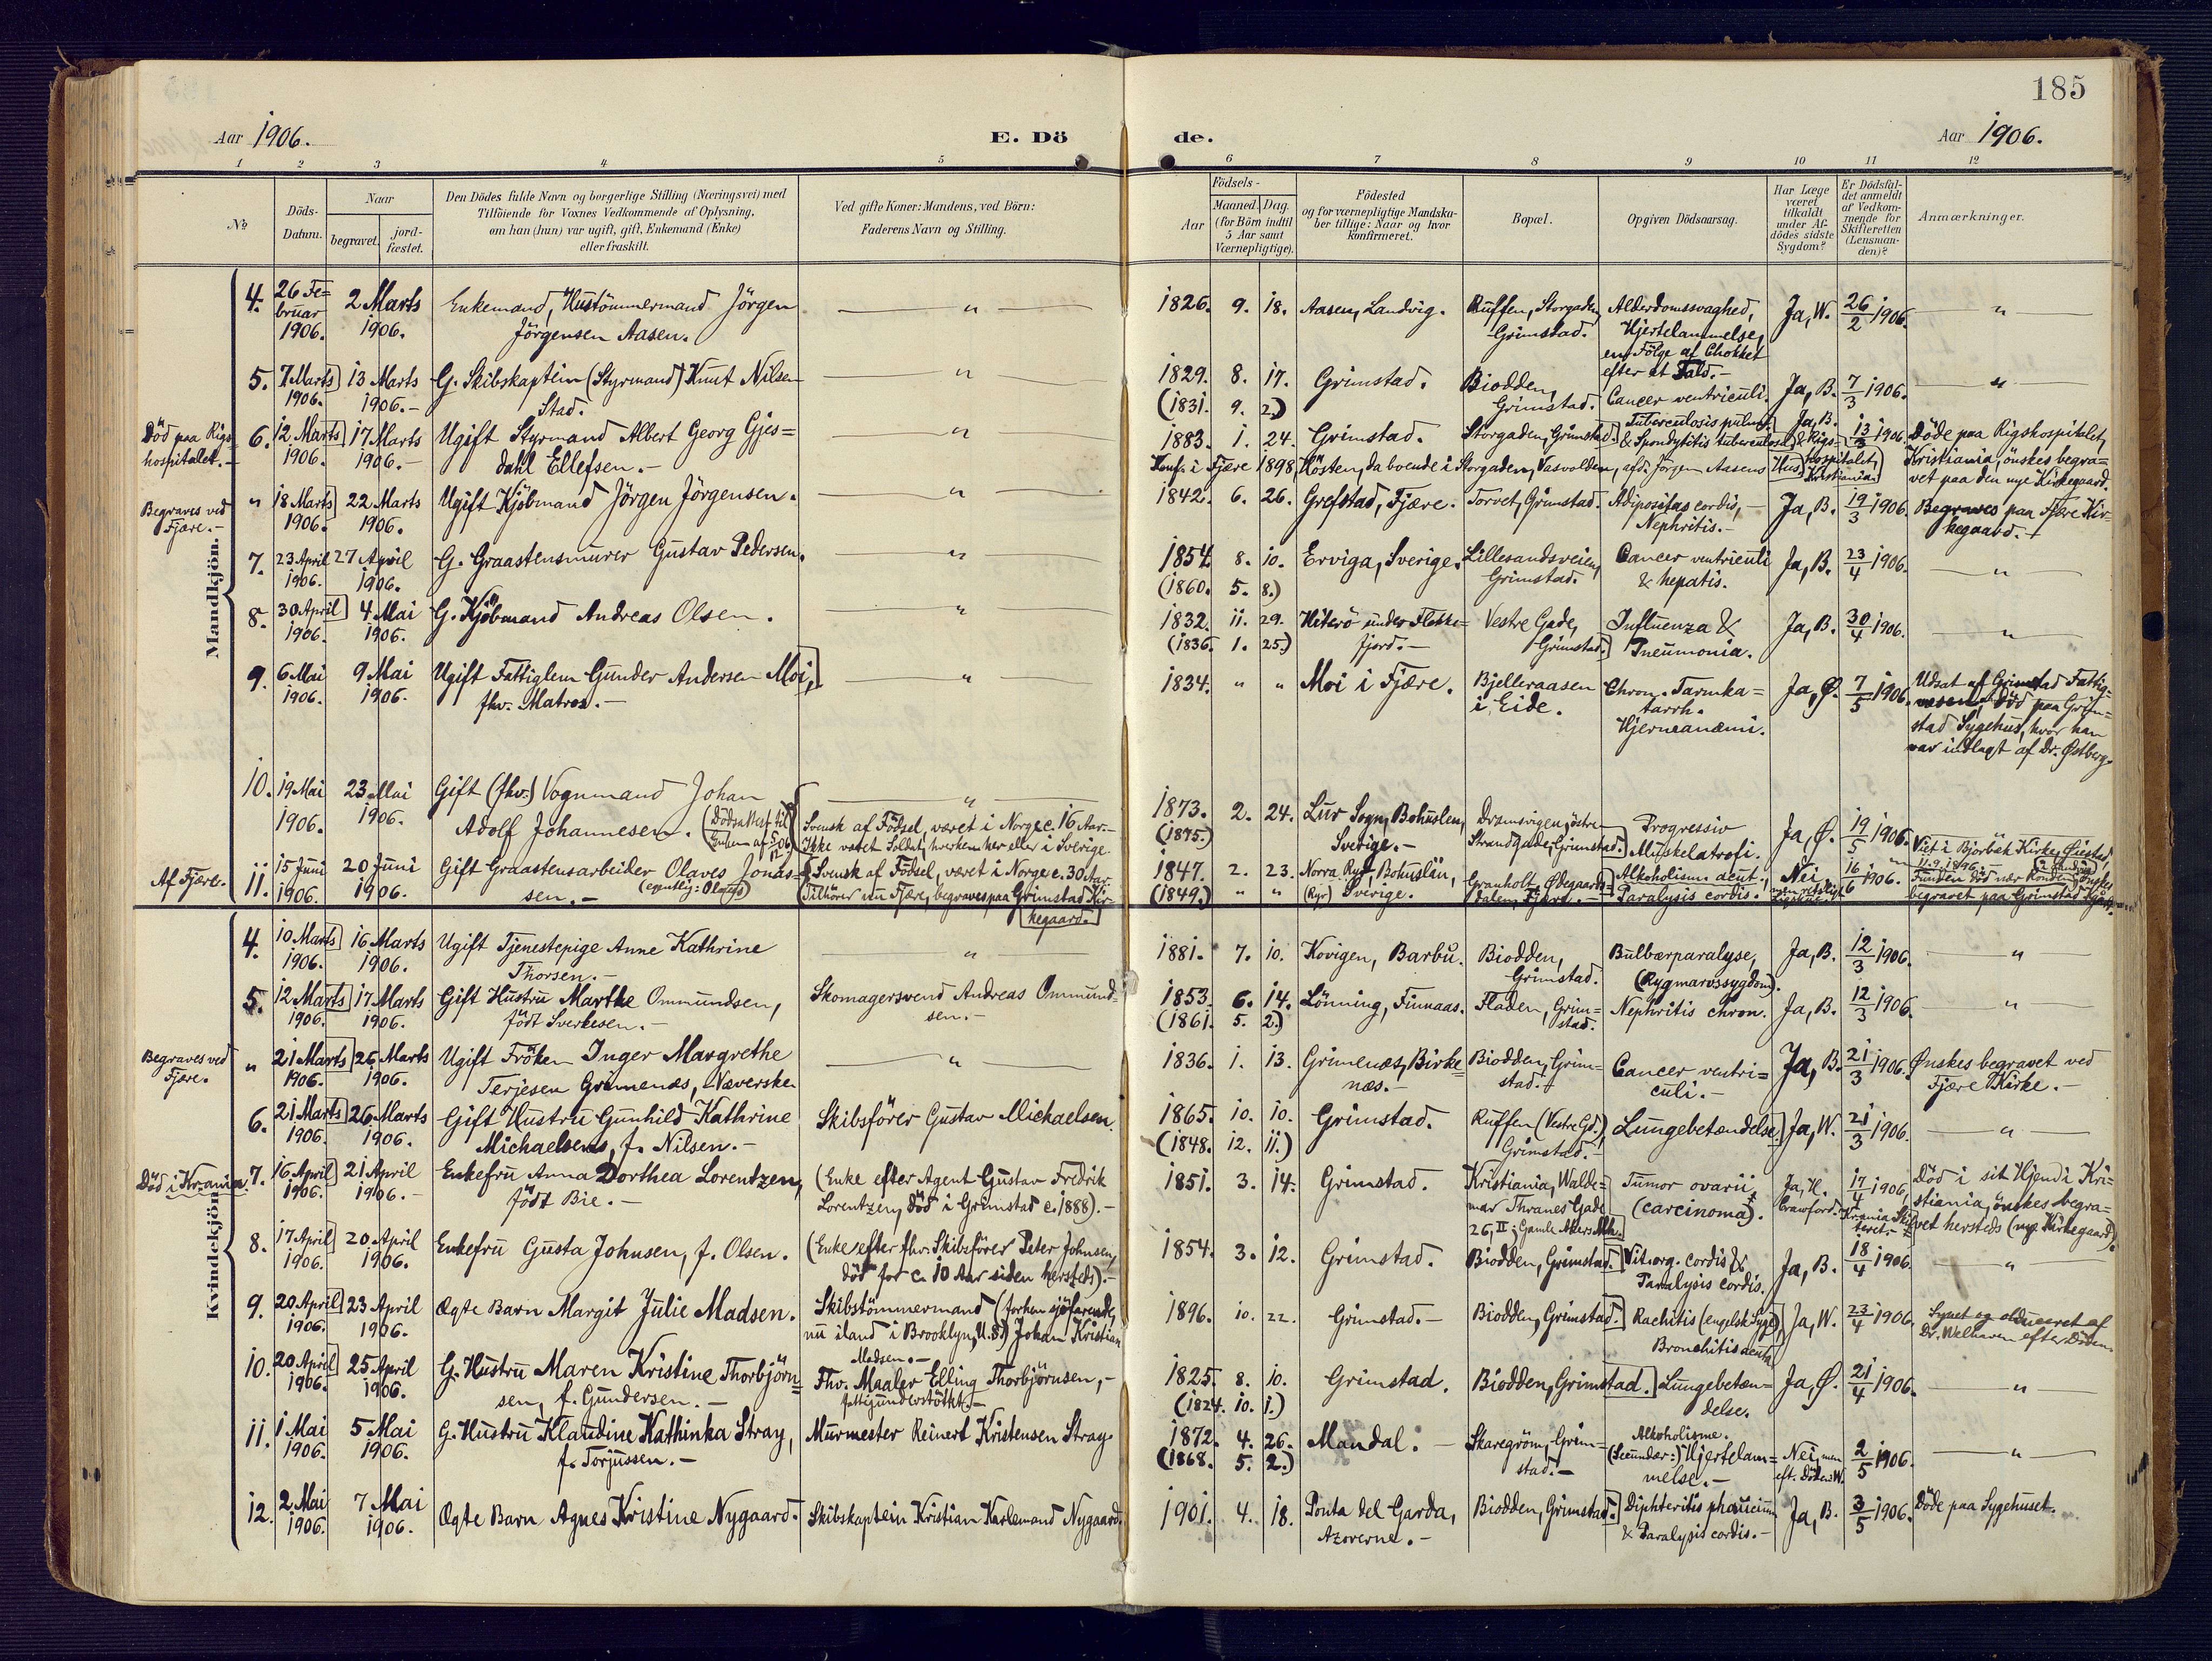 185
Aar 1906.
E. Dö
de.
Aar 1906.
1 2 3 4 5 6 7 8 9 10 11 12
No
Döds-
Datum.
Naar
begravet.
jord-
fæstet.
Den Dödes fulde Navn og borgerlige Stilling (Næringsvei) med
Tilföiende for Voxnes Vedkommende af Oplysning,
om han (hun) var ugift, gift, Enkemand (Enke)
eller fraskilt.
Ved gifte Koner: Mandens, ved Börn:
Faderens Navn og Stilling.
Födsels-
Aar
Maaned.
Dag.
(for Börn indtil
5 Aar samt
Værnepligtige).
Födested
og for værnepligtige Mandska-
ber tillige: Naar og hvor
konfirmeret.
Bopæl.
Opgiven Dödsaarsag.
Har Læge
været
tilkaldt
under Af-
dödes sidste
Sygdom?
Er Dödsfal-
det anmeldt
af Vedkom-
mende for
Skifteretten
(Lensman-
den)?
Anmærkninger.
Mandkjön.
4. 26 Fe=
bruar
1906.
2 Marts
1906.
Enkemand, Hustömmermand Jörgen
Jörgensen Aasen.
"
1826. 9. 18. Aasen, Landvig.
Ruffen, Storgaden,
Grimstad.
Alderdomssvaghed,
Hjertelammelse,
en Fölge af Chokket
efter et Fald.-
Ja, W. 26/2 1906.
"
5. 7 Marts
1906.
13 Marts
1906.-
G. Skibskaptein (Styrmand) Knut Nilsen
Stad.
"
1829. 8. 17.
(1831. 9. 2.)
Grimstad.
Biodden,
Grimstad.
Cancer ventriculi.
Ja, B. 7/3 1906.
"
Död paa Rigs=
hospitalet.-
6. 12 Marts
1906.
17 Marts
1906.-
Ugift Styrmand Albert Georg Gjes=
dahl Ellefsen.-
"
1883. 1. 24. Grimstad.
Storgaden, Grimstad.
Tuberculosis pulm.
& Spondylitis tuberculosa
Ja, B.
& Rigs=
hospitalet,
Kristiania.
13/3 1906.
Döde paa Rigshospitalet,
Kristiania, önskes begra=
vet paa den nye Kirkegaard.
Konf. i Fjære 1898, Hösten, da boende i Storgaden, Vasvolden, afd. Jörgen Aasens Hus.
Begraves ved
Fjære.-
" 18 Marts
1906.
22 Marts
1906.
Ugift Kjöbmand Jörgen Jörgensen.
"
1842. 6. 26. Grefstad, Fjære.
Torvet, Grimstad.
Adipositas cordis,-
Nephritis.-
Ja, B. 19/3 1906.
Begraves paa Fjære Kir=
kegaard.-
7. 23 April
1906.
27 April
1906.
G. Graastensmurer Gustav Pedersen.
"
1854. 8. 10.
(1860. 5. 8.)
Erviga, Sverige.
Lillesandsveien,
Grimstad.
Cancer ventriculi
& hepatis.
Ja, B. 23/4 1906.
"
8. 30 April
1906.
4 Mai
1906.
G. Kjöbmand Andreas Olsen.
"
1832. 11. 29.
(1836. 1. 25.)
Hiterö under Flekke=
fjord.-
Vestre Gade,
Grimstad.
Influenza &
Pneumonia.
Ja, B. 30/4 1906.
"
9. 6 Mai
1906.
9 Mai
1906.
Ugift Fattiglem Gunder Andersen Moi,
fhv. Matros.-
"
1834. " " Moi i Fjære.
Bjelleraasen
i Eide.
Chron. Tarmka=
tarrh.
Hjerneanæmi.
Ja, Ø. 7/5 1906.
Udsat af Grimstad Fattig=
væsen, död paa Grim=
stad Sygehus, hvor han
var indlagt af Dr. Østberg.
10. 19 Mai
1906.
23 Mai
1906.
Gift (fhv.) Vognmand Johan
Adolf Johannesen.
(Dödsattest til
Enken af 5/12 06)
"
Svensk af Födsel, været i Norge c. 16 Aar.-
Ikke været Soldat, hverken her eller i Sverige.
1873. 2. 24.
(1875.)
Lur Sogn, Bohuslen,
Sverige.-
Dromsvigen, östre
Strandgade, Grimstad.
Progressiv
Muskelatrofi.
Ja, Ø. 19/5 1906.
Viet i Bjorbæk Kirke, Øiestad,
11.9.1896.-
Af Fjære.-
11. 15 Juni
1906.
20 Juni
1906.
Gift Graastensarbeider Olaves Jonas=
sen.- (egentlig: Olaus)
Svensk af Födsel, været i Norge c. 30 Aar.
Tilhörer nu Fjære, begraves paa Grimstad Kir=
kegaard.-
1847. 2. 23.
(1849.) " "
Norra Ryr, Bohuslän,
(Ryr) Sverige.
Granholt, Ødegaards=
dalen, Fjære.-
Alkoholismus acut.,
Paralysis cordis.
Nei,
16/6 1906.
Funden död nær Ronden, önskes
begravet paa Grimstad Kgaard.
Kvindekjön.
4. 10 Marts
1906.
16 Marts
1906.
Ugift Tjenestepige Anne Kathrine
Thorsen.-
"
1881. 7. 10. Kovigen, Barbu.
Biodden,
Grimstad.
Bulbærparalyse,
(Rygmarvssygdom).
Ja, B. 12/3 1906.
"
5. 12 Marts
1906.
17 Marts
1906.
Gift Hustru Marthe Ommundsen,
födt Sverkesen.-
Skomagersvend Andreas Ommund=
sen.-
1853. 6. 14.
(1861. 5. 2.)
Lönning, Finnaas.
Fladen, Grim=
stad.
Nephritis chron.
Ja, B. 12/3 1906.
"
Begraves ved
Fjære.
" 21 Marts
1906.
26 Marts
1906.
Ugift Fröken Inger Margrethe
Terjesen Grimenæs, Væverske
"
1836. 1. 13. Grimenæs, Birke=
næs.-
Biodden, Grim=
stad.-
Cancer ventri=
culi.-
Ja, B. 21/3 1906.
Ønskes begravet ved
Fjære Kirke.-
6. 21 Marts
1906.
26 Marts
1906.
Gift Hustru Gunhild Kathrine
Michaelsens, f. Nilsen.-
Skibsförer Gustav Michaelsen.
1865. 10. 10.
(1848. 12. 11.)
Grimstad.
Ruffen (Vestre Gd.),
Grimstad.-
Lungebetændelse.
Ja, W. 21/3 1906.
"
Död i Kr.ania.
7. 16 April
1906.
21 April
1906.-
Enkefru Anna Dorthea Lorentzen,
födt Bie.-
(Enke efter Agent Gustav Fredrik
Lorentzen, död i Grimstad c. 1888).-
1851. 3. 14. Grimstad.
Kristiania, Walde=
mar Thranes Gade
26, II; Gamle Akers
Tumor ovarii,
(carcinoma).
Ja, H.
Crawford.
17/4 1906,
Krania Skif=
teret
Död i sit Hjem i Kri=
stiania, önskes begra=
vet hersteds (nye Kirkegaard).
8. 17 April
1906.
20 April
1906.
Enkefru Gusta Johnsen, f. Olsen.
(Enke efter fhv. Skibsförer Peter Johnsen,
död for c. 10 Aar siden hersteds).-
1854. 3. 12. Grimstad.
Biodden, Grimstad.
Vit. org. cordis &
Paralysis cordis.
Ja, B. 18/4 1906.
"
9. 20 April
1906.
23 April
1906.
Ægte Barn Margit Julie Madsen.
Skibstömmermand (forhen sjöfarende,
nu iland i Brooklyn, U.S.) Johan Kristian
Madsen.-
1896. 10. 22. Grimstad.-
Biodden, Grimstad.
Rachitis (engelsk Syge),
Bronchitis acuta
Ja, W. 23/4 1906.
Synet og obduceret af
Dr. Welhaven efter Döden.
10. 20 April
1906.
25 April
1906.
G. Hustru Maren Kristine Thorbjörn=
sen, f. Gundersen.-
Fhv. Maaler Elling Thorbjörnsen,-
fattigunderstöttet.-
1825. 8. 10.
(1824. 10. 1.)
Grimstad.
Biodden, Grimstad.
Lungebetæn=
delse.
Ja, Ø. 21/4 1906.
"
11. 1 Mai
1906.
5 Mai
1906.
G. Hustru Klaudine Kathinka Stray,
f. Torjussen.-
Murmester Reinert Kristensen Stray.
1872. 4. 26.
(1868. 5. 2.)
Mandal.-
Skaregröm, Grim=
stad.-
Alkoholisme.
(Secundær:) Hjertelam=
melse.-
Nei, men
eft. Döden: W.
2/5 1906.
"
12. 2 Mai
1906.
7 Mai
1906.
Ægte Barn Agnes Kristine Nygaard.
Skibskaptein Kristian Karlemand Nygaard.
1901. 4. 18. Ponta del Garda,
Azoverne.-
Biodden, Grimstad.
Diphteritis phaucium
& Paralysis cordis.-
Ja, B. 3/5 1906.
Döde paa Sygehuset.